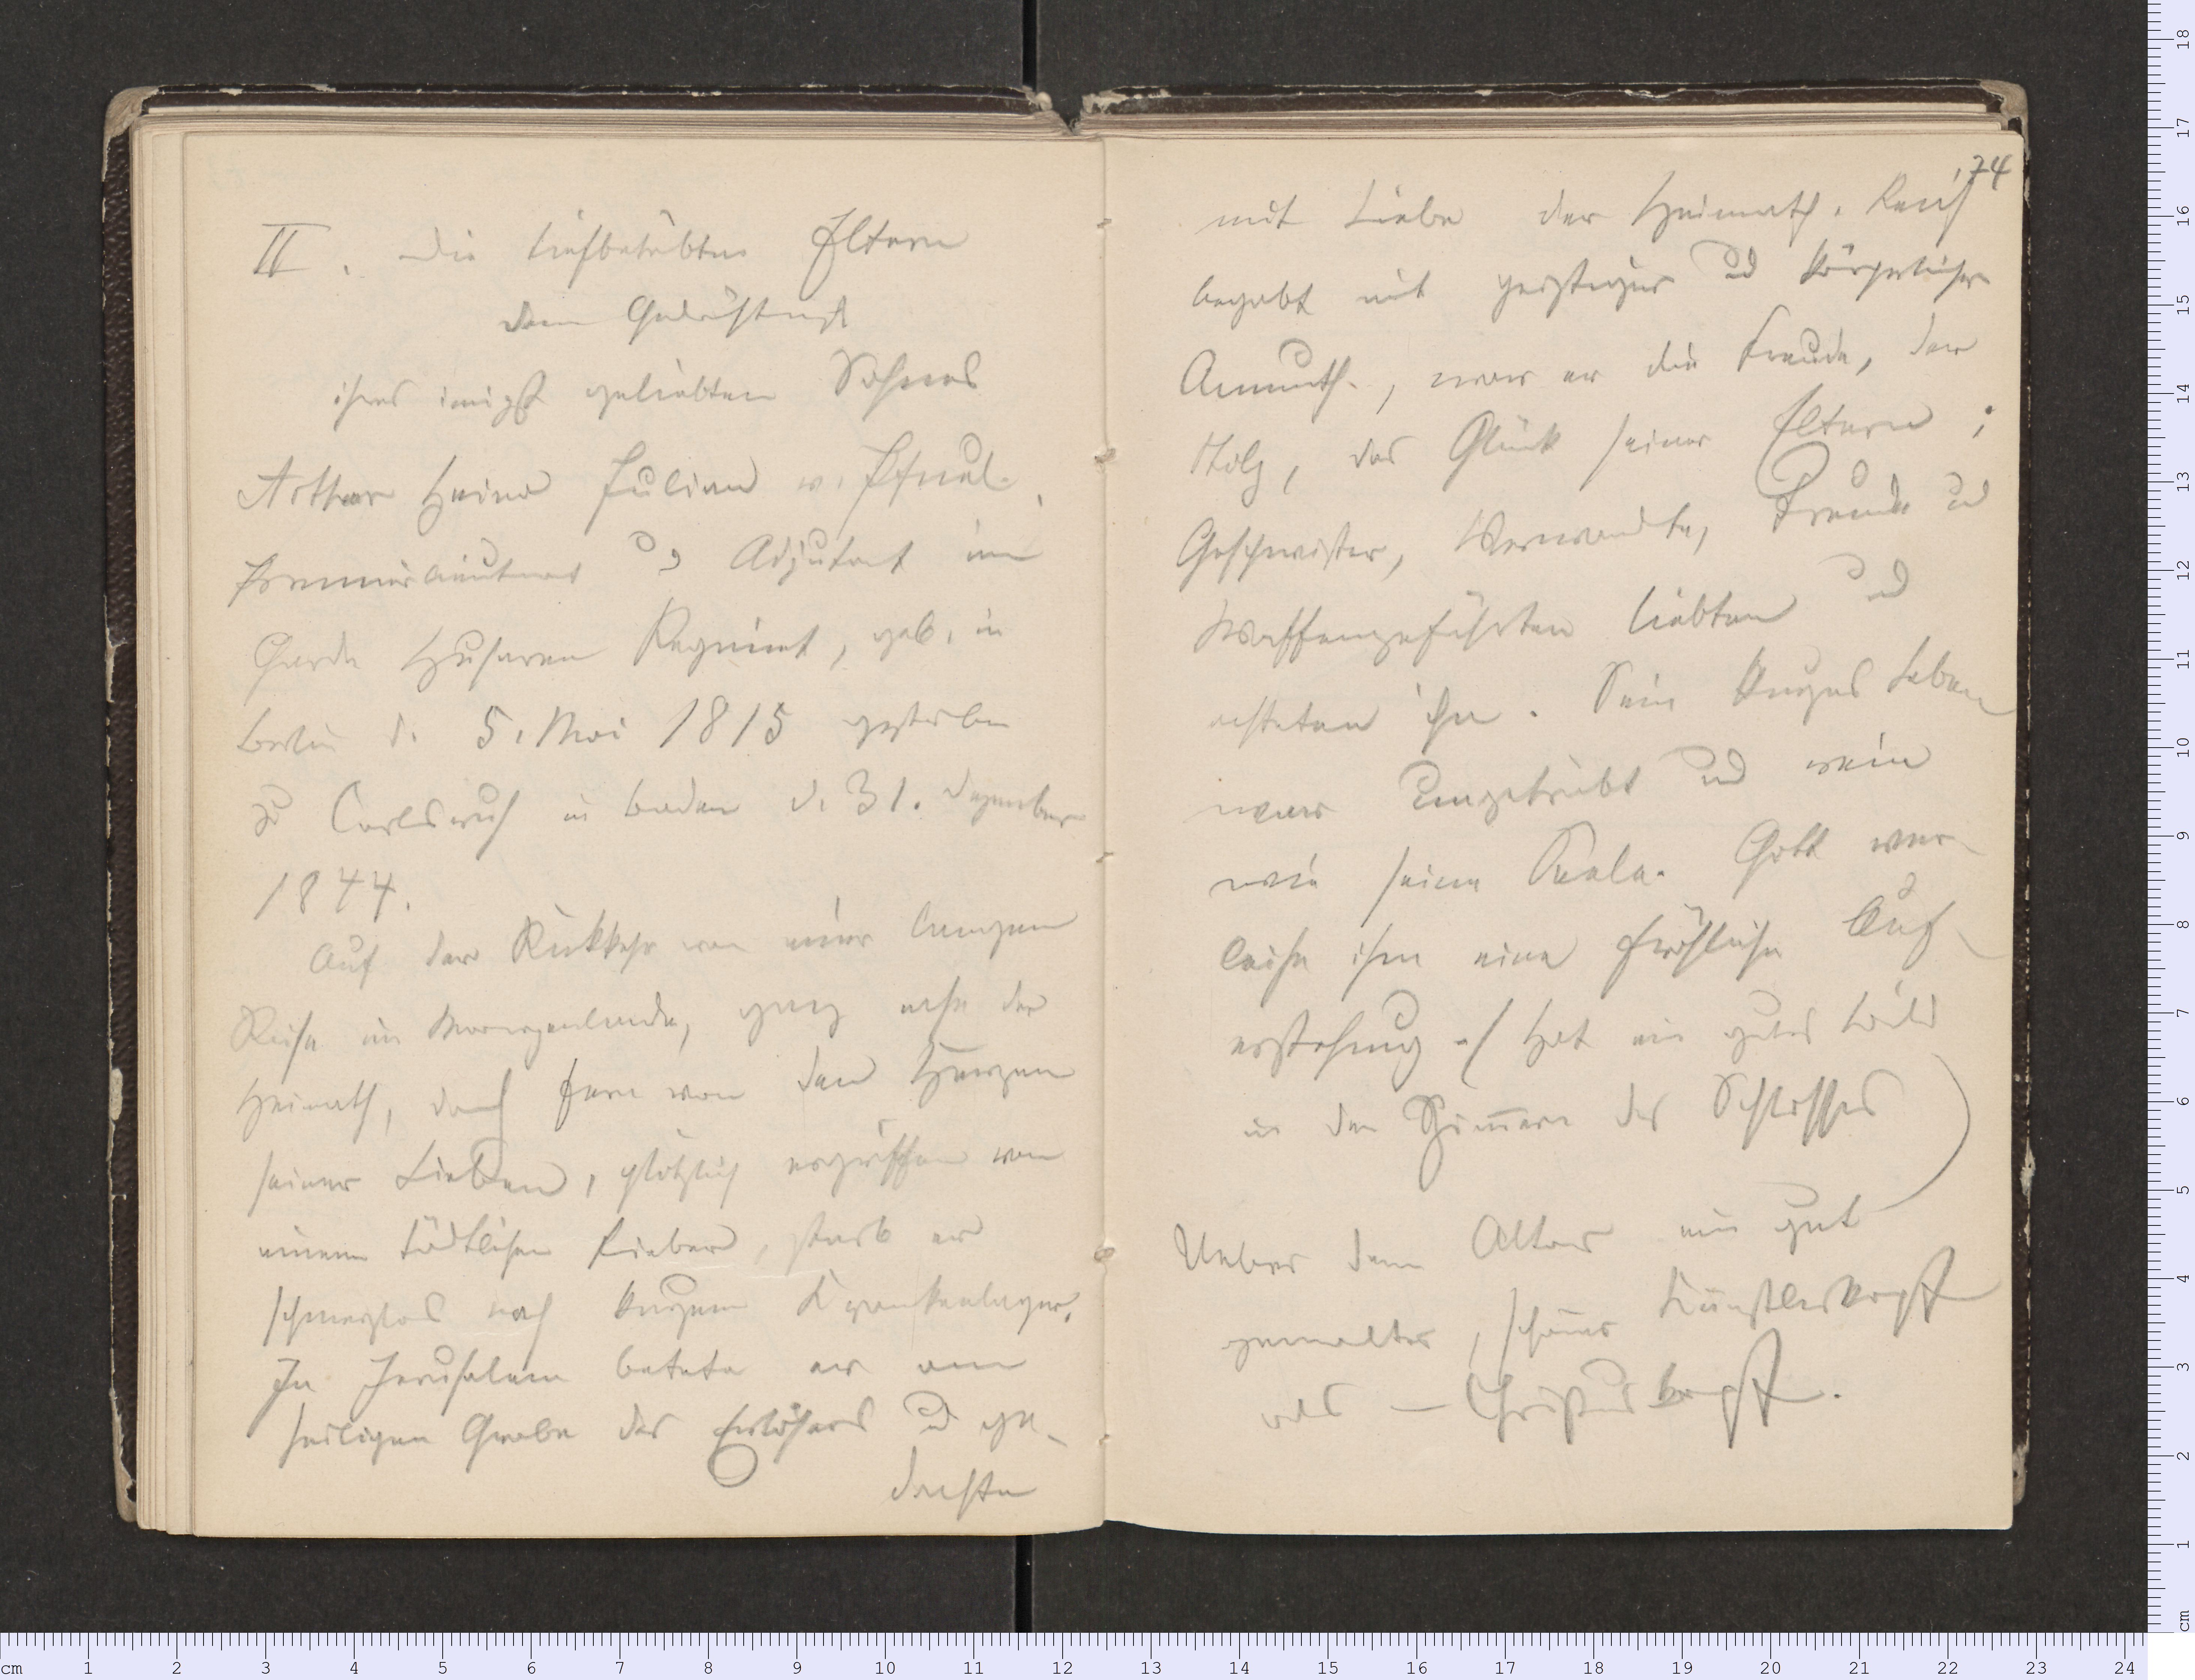 II. Die tiefbetrübten Eltern
dem Gedächtniß
ihres innigst geliebten Sohnes
Arthur Heino Julian v. Pfuel.
Premierlieutnant u Adjutant im
Garde Husaren Regiment, geb. in
Berlin d. 5. Mai 1815 gestorben
zu Carlsruh in Baden d. 31. Dezember
1844.
Auf der Rückkehr von einer langen
Reise im Morgenlande, ganz nahe der
Heimath, doch fern von den Herzen
seiner Lieben, plötzlich ergriffen von
einem tödtlichen Fieber, starb er
schmerzlos nach kurzem Krankenlager.
In Jerusalem betete er am
heiligen Grabe des Erlösers und ge-
dachte
74
mit Liebe der Heimath. Reich
begabt mit geistiger und körperlicher
Anmuth, war er die Freude, der
Stolz, das Glück seiner Eltern;
Geschwister, Verwandte, Freunde und
Waffengefährten liebten und
achteten ihn. Sein kurzes Leben
war ungetrübt und rein
wie seine Seele. Gott ver-
leihe ihm eine fröhliche Auf-
erstehung. (Hat ein gutes Bild
in den Zimern des Schlosses)
Ueber dem Altar ein gut
gemalter, schöner Künstlerkopf
als — Christuskopf.